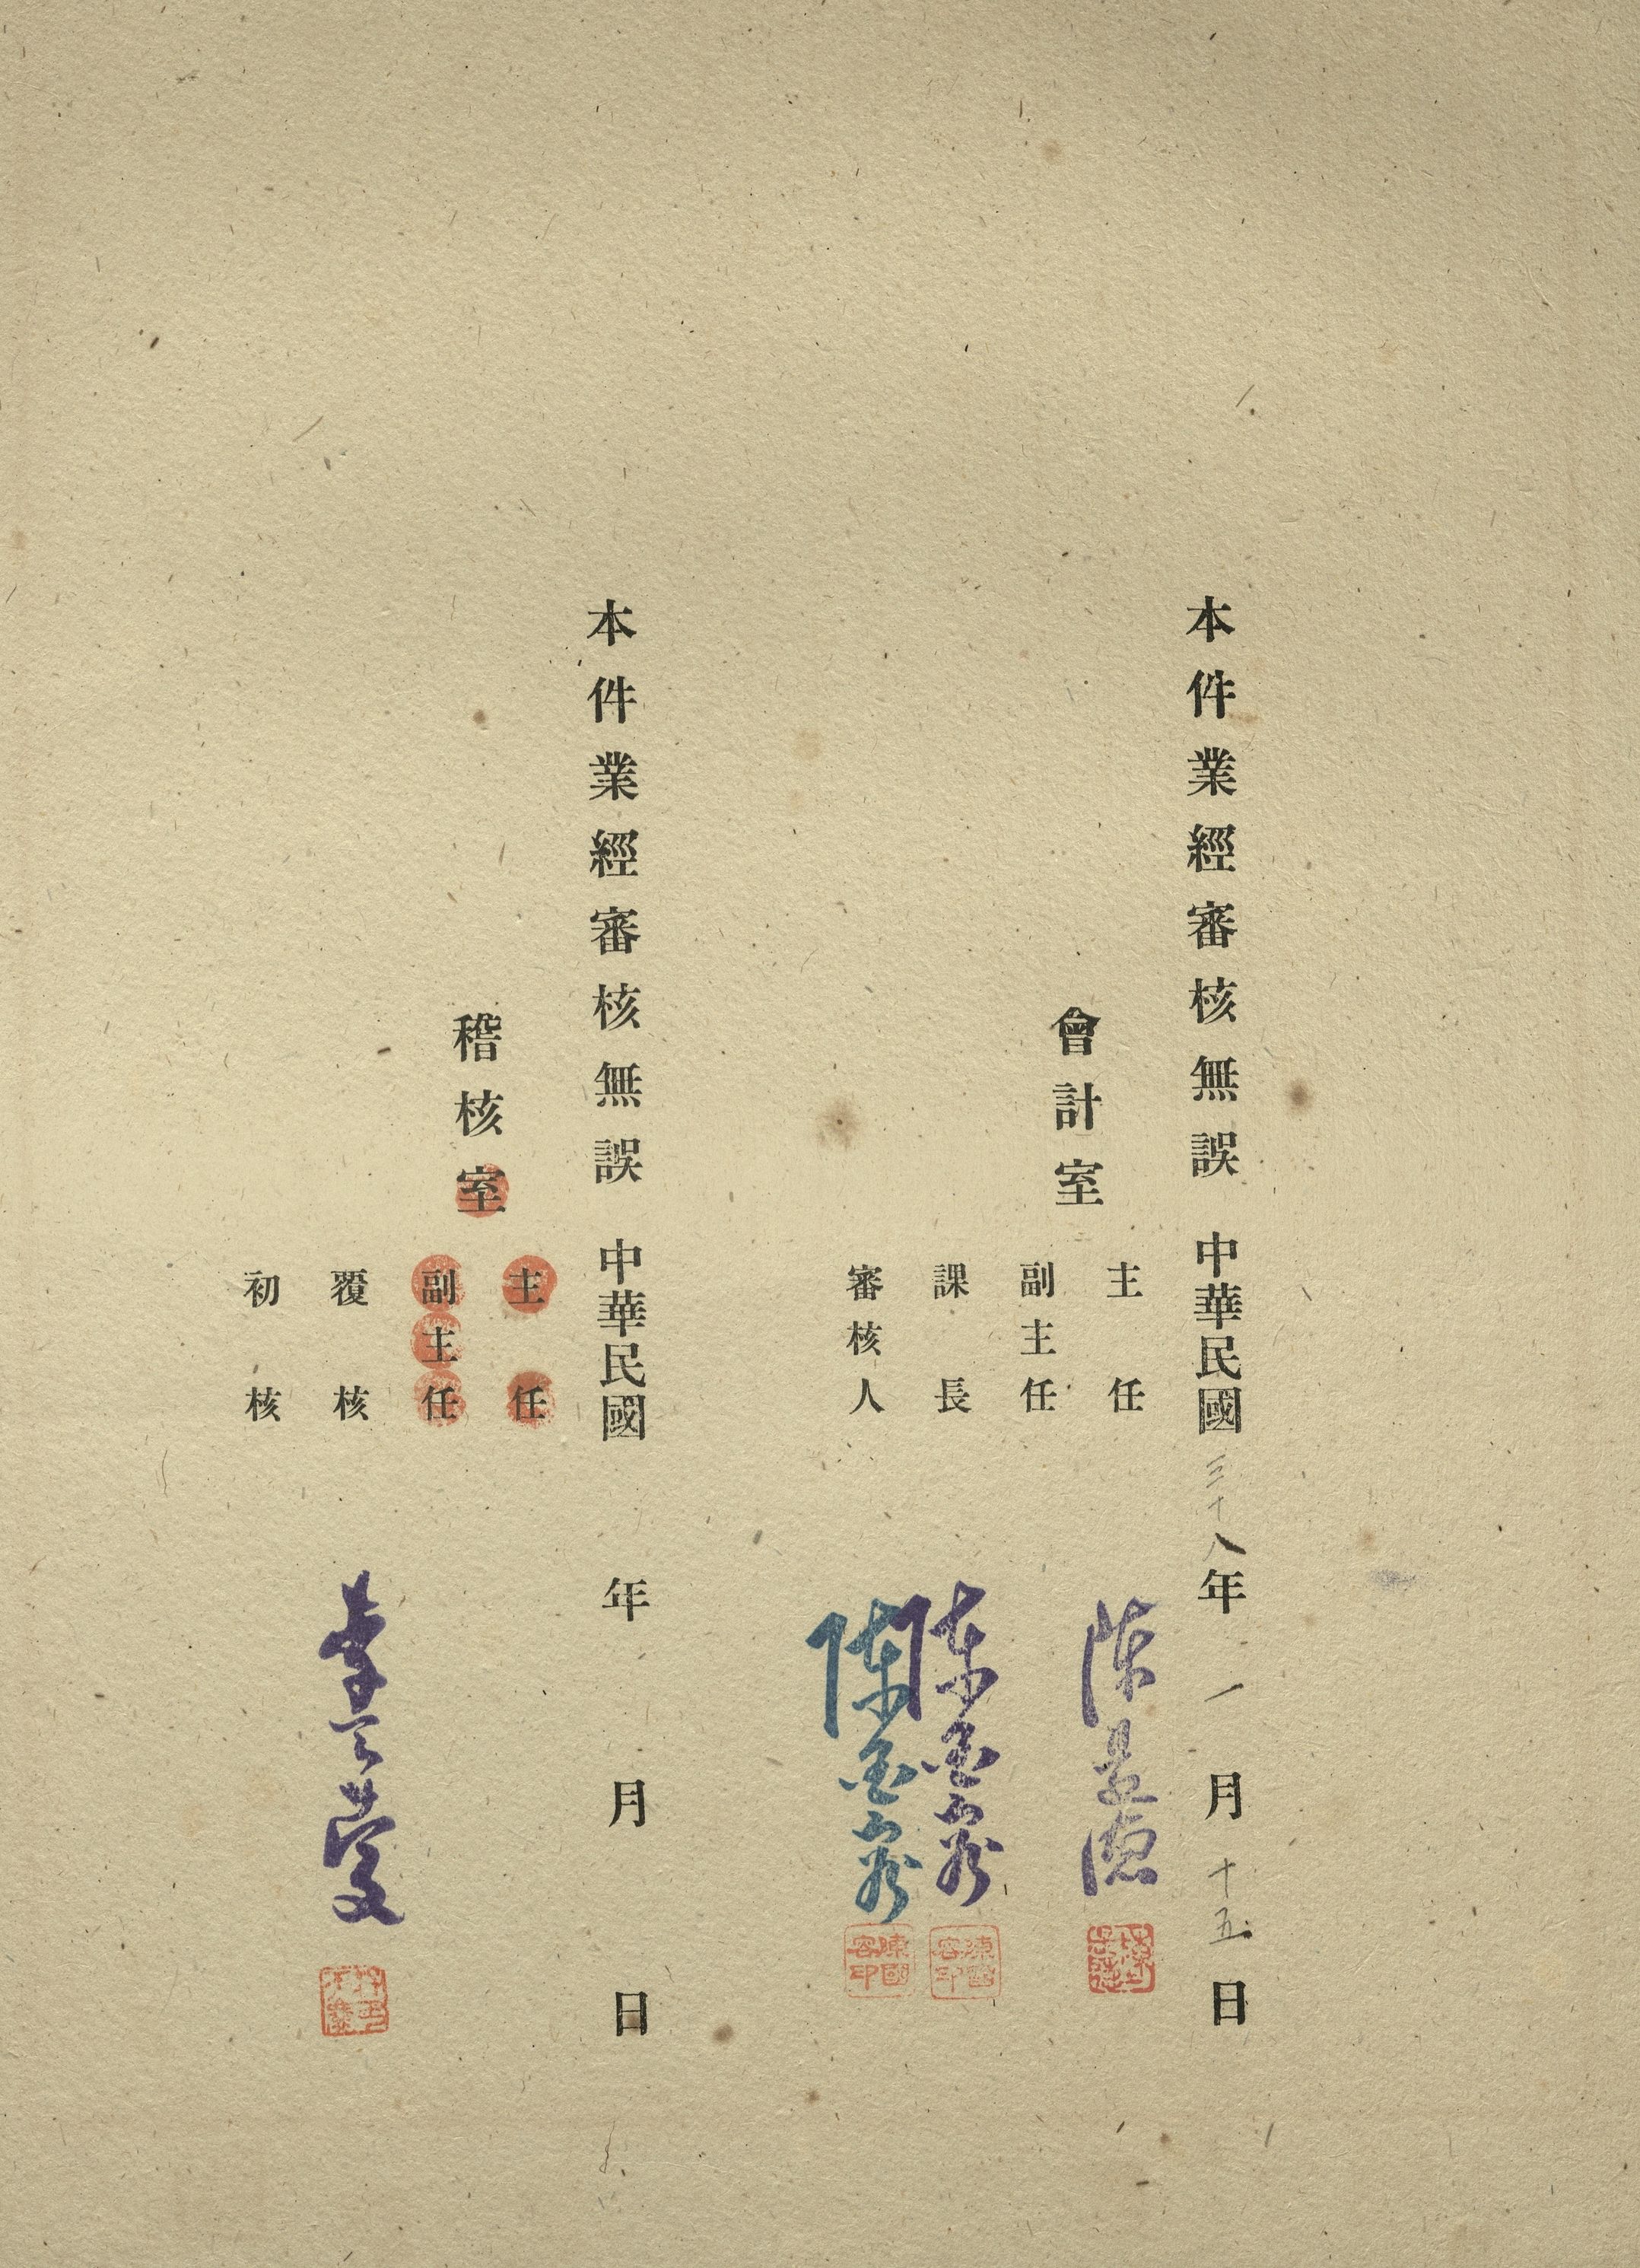 本件業經審核無誤 中華民國三十八年一月十五日
會計室
主任
副主任
課長
審核人
陳國容印
本件業經審核無誤 中華民國 年 月 日
稽核室
主任
副主任
覆核
初核